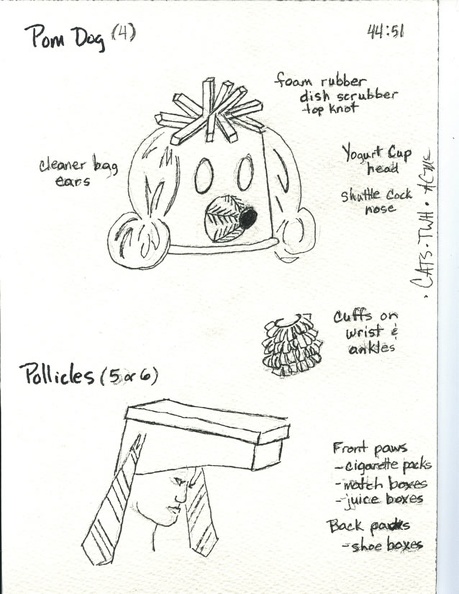 Pom Dog (4)
44:51
foam rubber
dish scrubber
top knot
cleaner bag
ears
Yogurt Cup
head
shuttle cock
nose
· CATS · TWH ·
cuffs on
wrist &
ankles
Pollicles (5 or 6)
Front paws
- cigarette packs
- match boxes
- juice boxes
Back paws
- shoe boxes